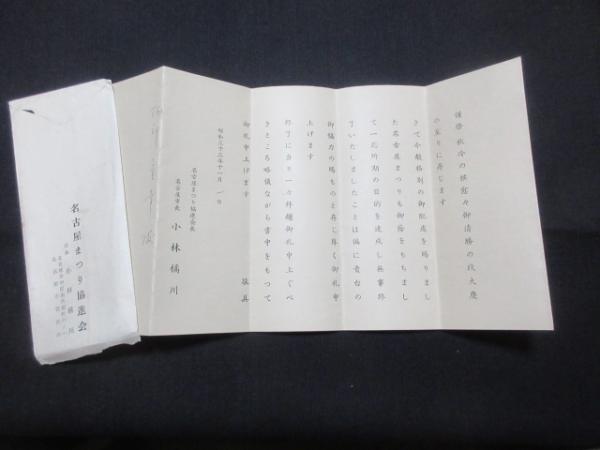 謹啓 秋冷の候愈々御清勝の段大慶
の至りに存じます
さて今般格別の御配慮を賜りまし
た名古屋まつりも御蔭をもちまし
て一応所期の目的を達成し無事終
了いたしましたことは偏に貴台の
御協力の賜ものと存じ厚く御礼申
上げます
終了に当り一々拝趨御礼申上ぐべ
きところ略儀ながら書中をもつて
御礼申上げます
敬具
昭和三十三年十一月 一日
名古屋まつり協進会長
名古屋市長
小林橘川
名古屋まつり協進会
会長 小林橘川